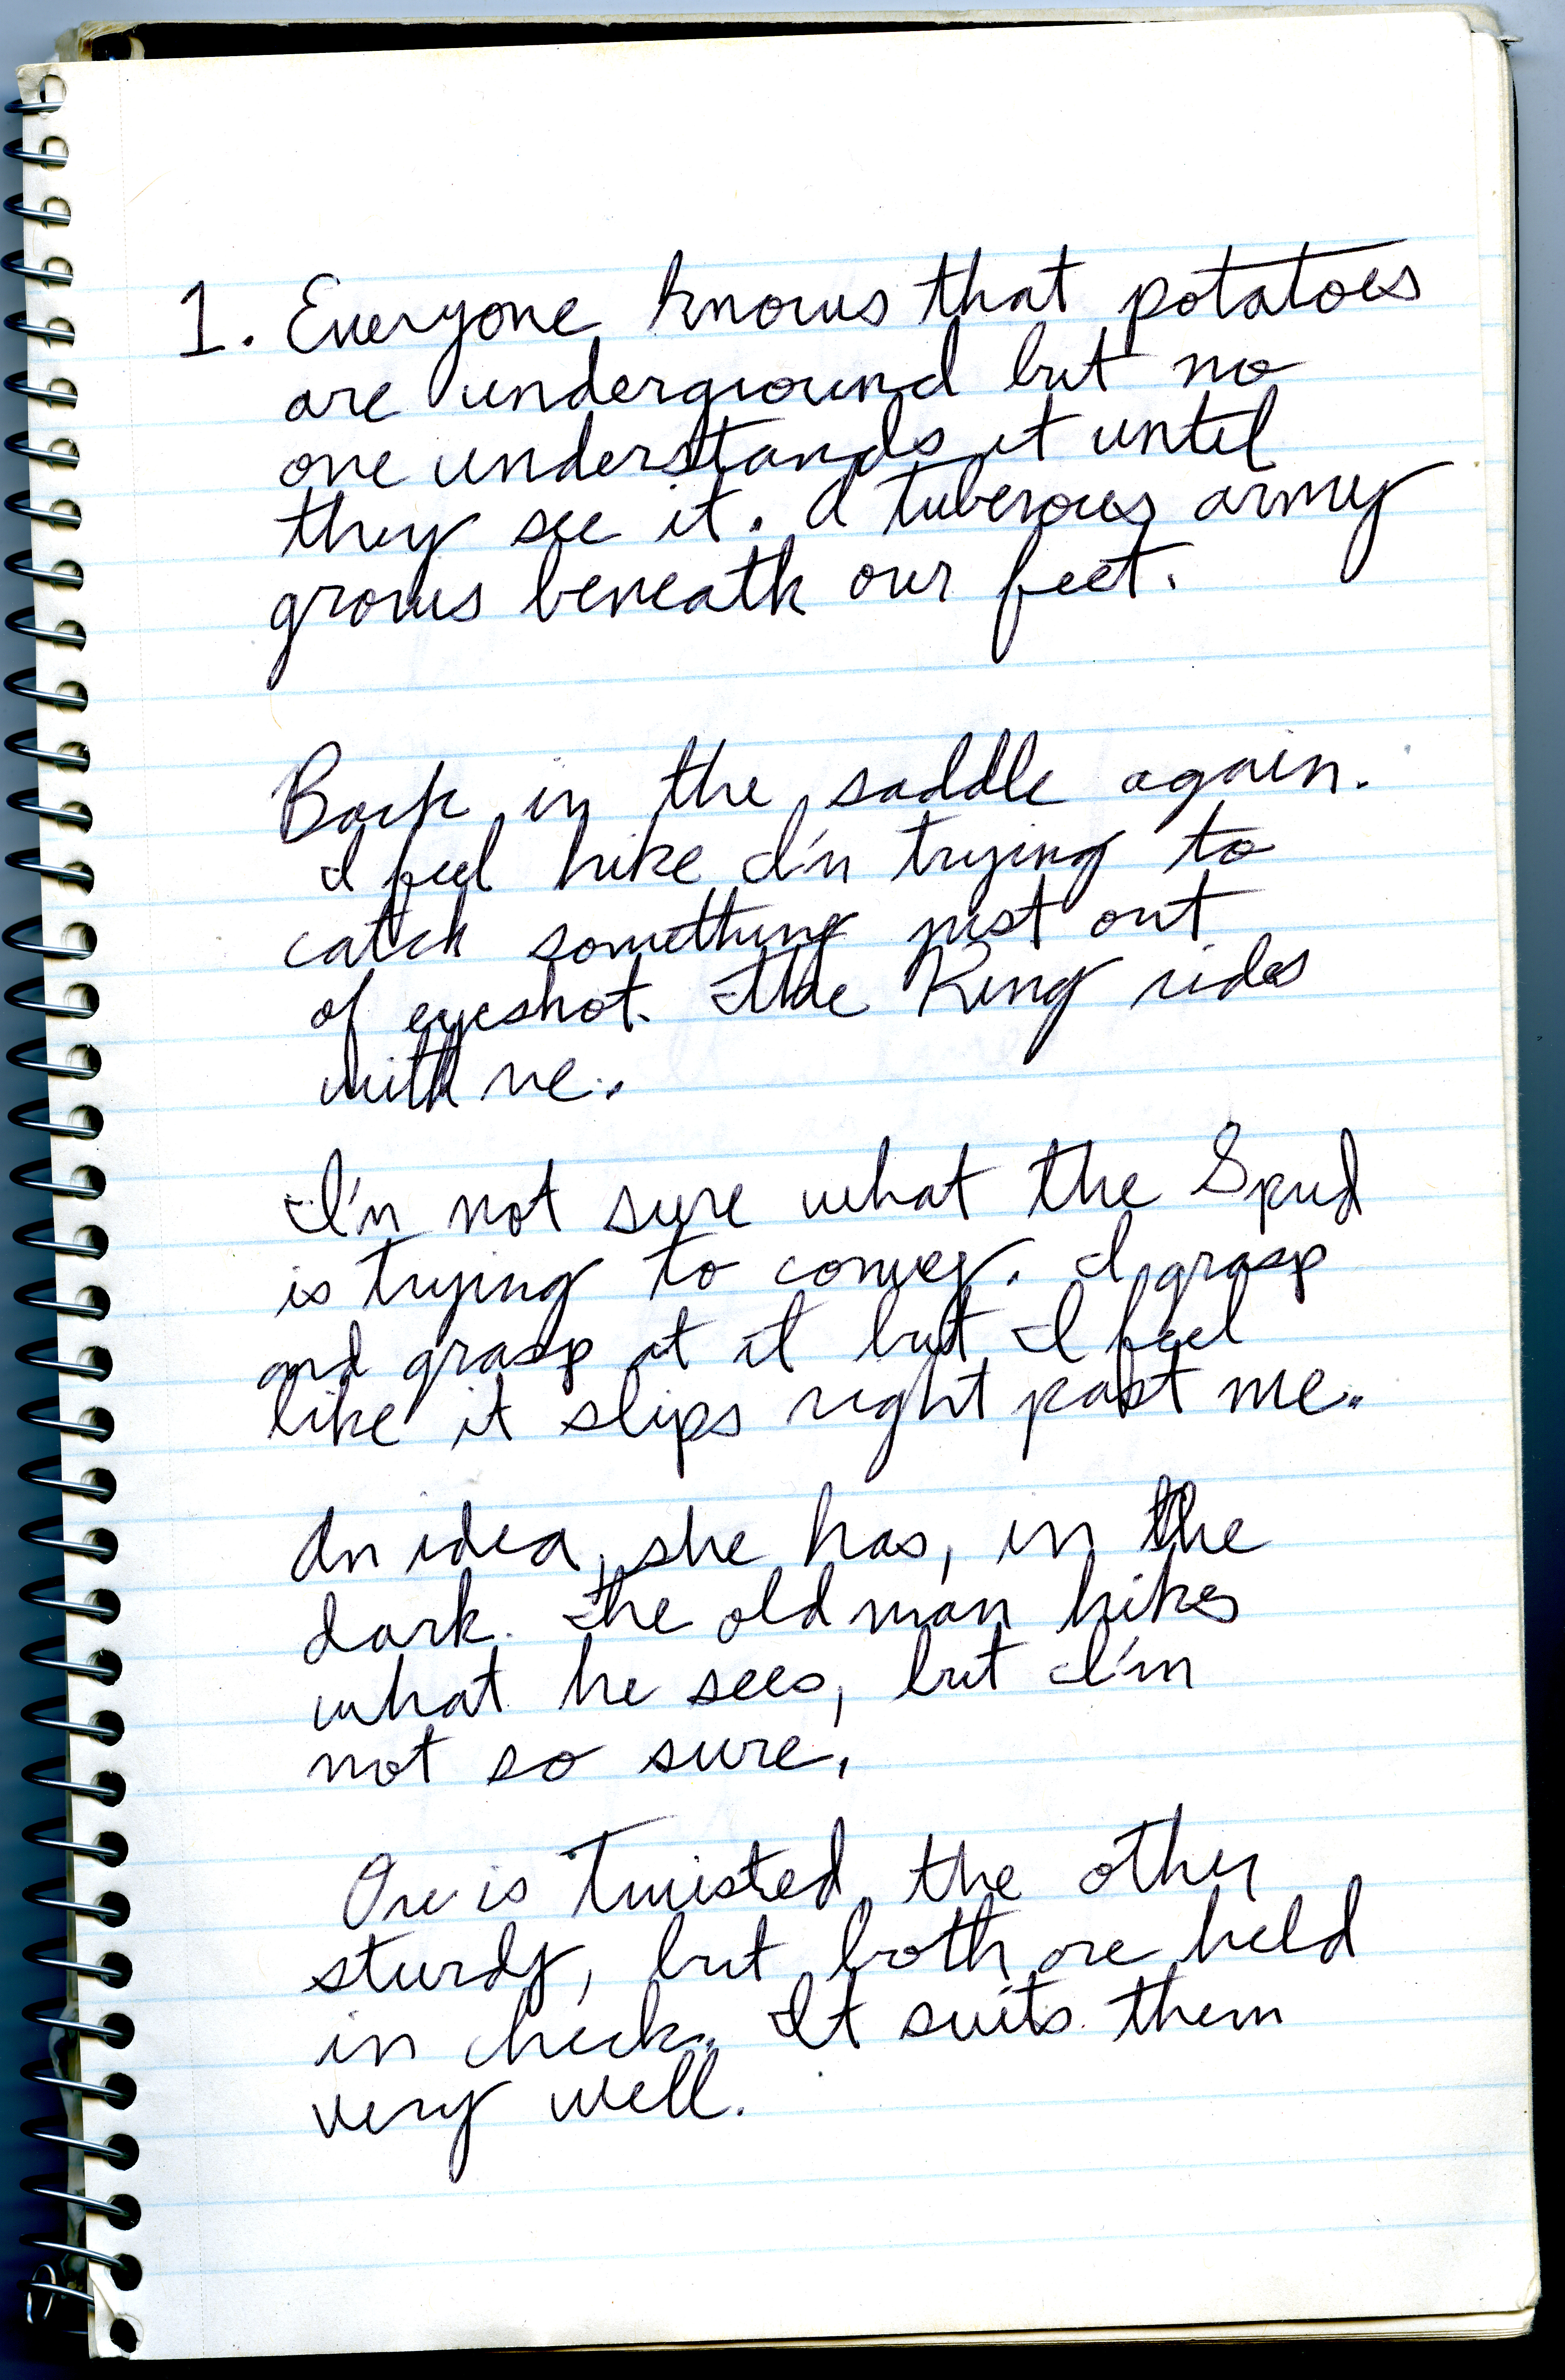 1. Everyone knows that potatoes
are underground but no
one understands it until
they see it. A tuberous army
grows beneath our feet.
Back in the saddle again.
I feel like I'm trying to
catch something just out
of eyeshot. The King rides
with me.
I'm not sure what the Spud
is trying to convey. I grasp
and grasp at it but I feel
like it slips right past me.
An idea, she has, in the
dark. The old man likes
what he sees, but I'm
not so sure.
One is twisted, the other
sturdy, but both are held
in check. It suits them
very well.